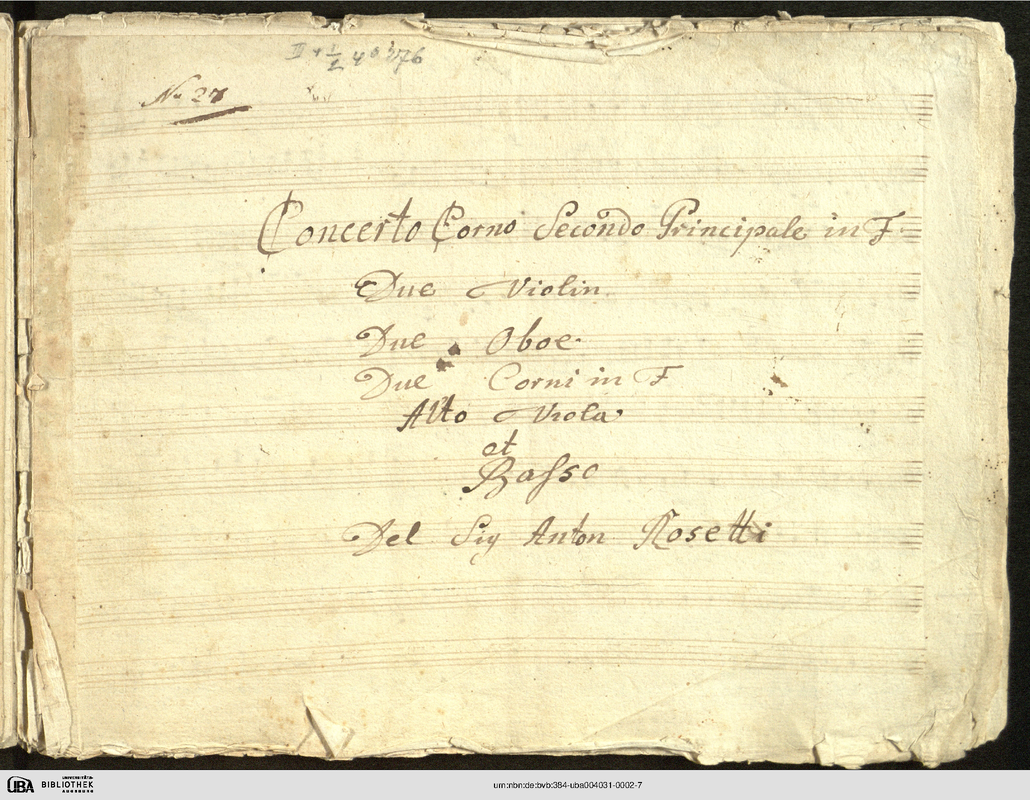 III + 1/2 4° 376
No 27
Concerto Corno Secondo Principale in F.
Due Violin
Due Oboe
Due Corni in F
Alto Viola
et
Basso
Del Sig Anton Rosetti
UBA UNIVERSITÄTS-
BIBLIOTHEK
AUGSBURG
urn:nbn:de:bvb:384-uba004031-0002-7